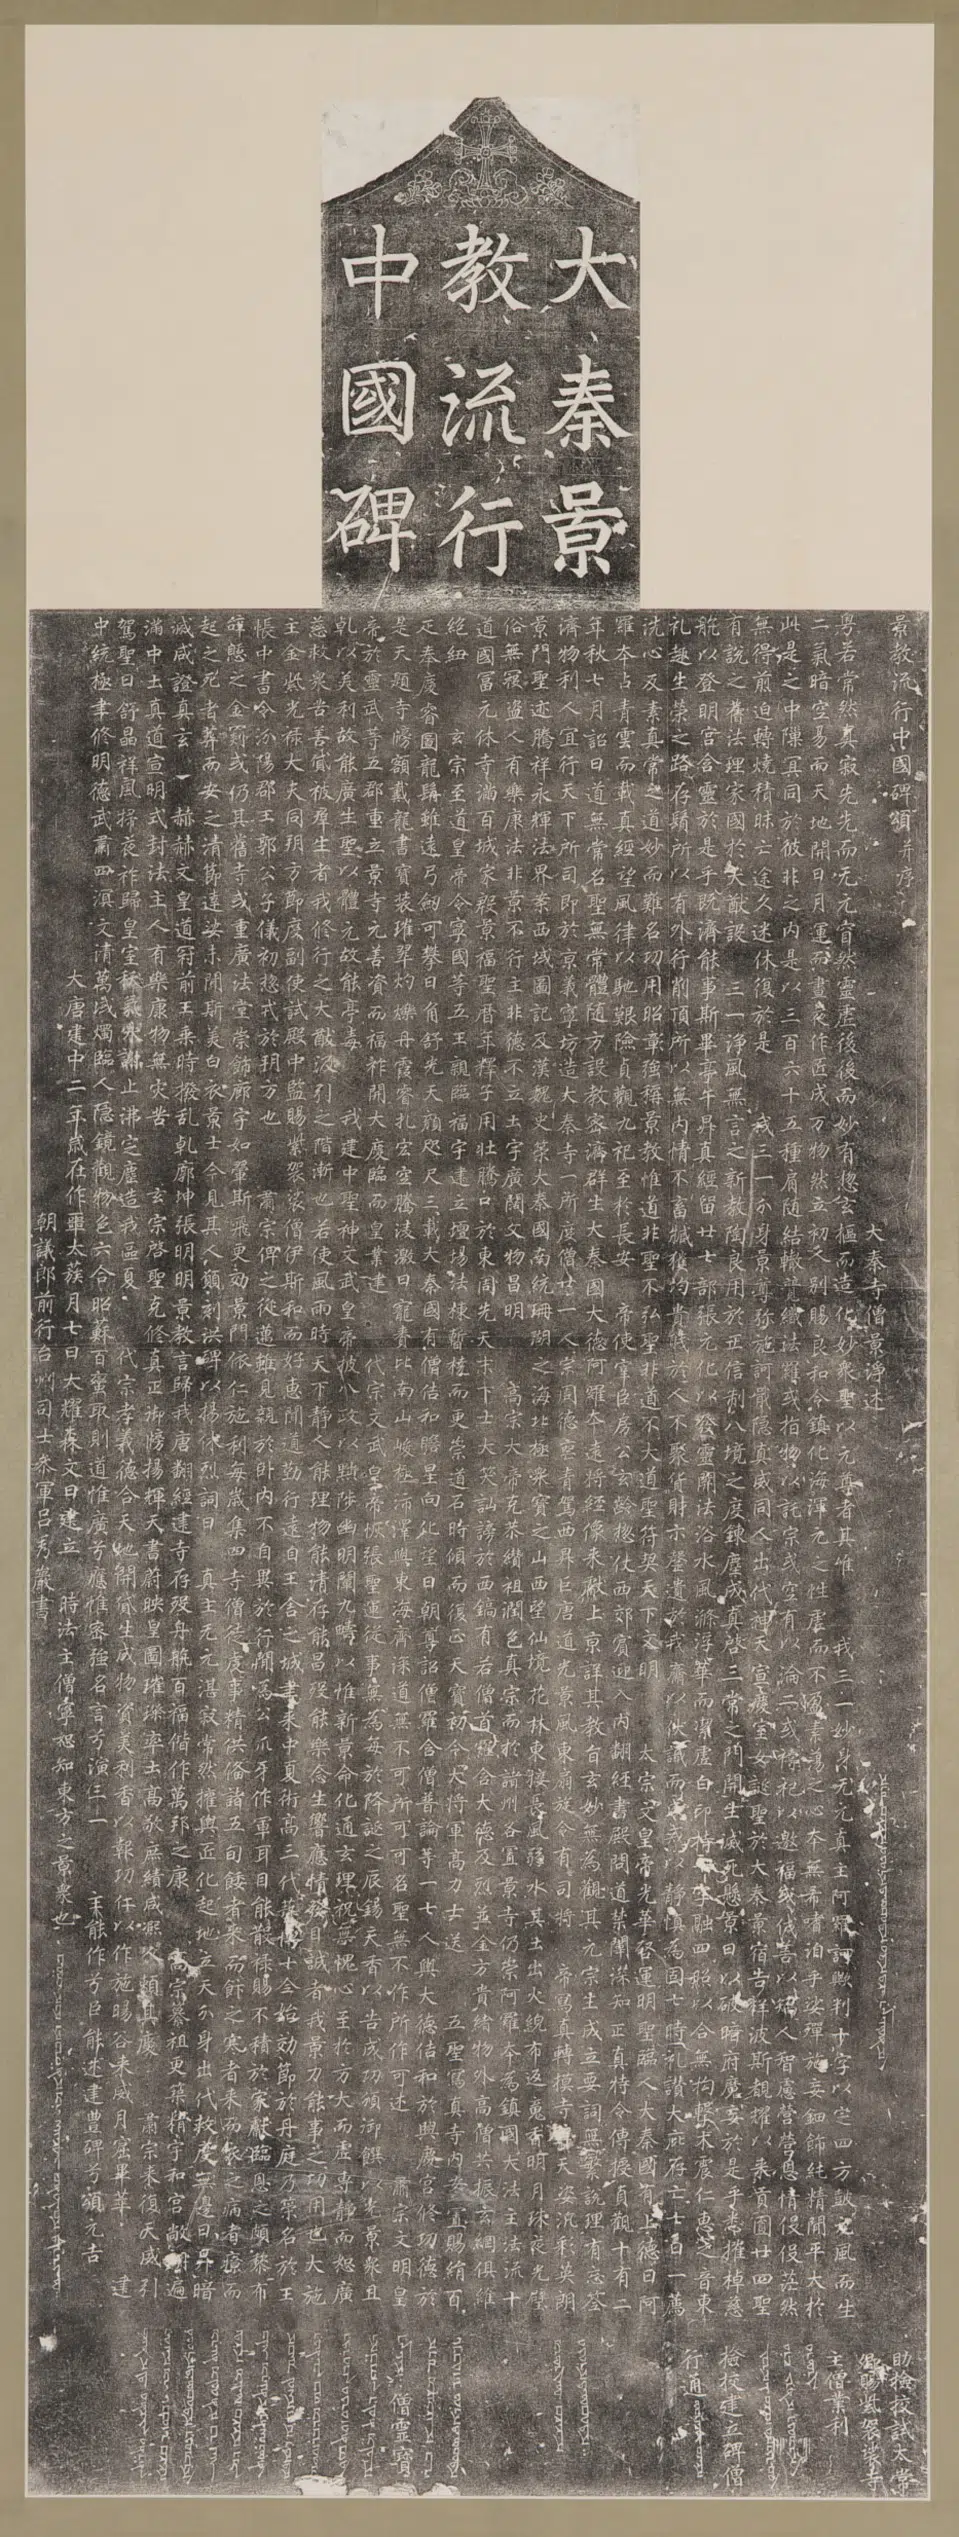 大秦景
教流行
中國碑
景教流行中國碑頌 并序
大秦寺僧景淨述
粵若常然真寂先先而无元窅然靈虛後後而妙有惣玄樞而造化妙眾聖以元尊者其唯 我三一妙身无元真主阿羅訶歟判十字以定四方鼓元風而生
二氣暗空易而天地開日月運而晝夜作匠成万物然立初人別賜良和令鎮化海渾元之性虛而不盈素蕩之心本無希嗜洎乎娑殫施妄鈿飾純精閒平大於
此是之中隟冥同於彼非之內是以三百六十五種肩隨結轍競織法羅或指物以託宗或空有以淪二或禱祀以邀福或伐善以矯人智慮營營恩情役役茫然
無得煎迫轉燒積昧亡途久迷休復於是 我三一分身景尊弥施訶戢隱真威同人出代神天宣慶室女誕聖於大秦景宿告祥波斯覩耀以來貢圓廿四聖
有說之舊法理家國於大猷設 三一淨風無言之新教陶良用於正信制八境之度鍊塵成真啓三常之門開生滅死懸景日以破暗府魔妄於是乎悉摧棹慈
航以登明宮含靈於是乎既濟能事斯畢亭午昇真經留廿七部張元化以發靈關法浴水風滌浮華而潔虛白印持十字融四照以合無拘擊木震仁惠之音東
礼趣生榮之路存鬚所以有外行削頂所以無內情不畜臧獲均貴賤於人不聚貨財示罄遺於我齋以伏識而成戒以靜慎為固七時礼讚大庇存亡七日一薦
洗心反素真常之道妙而難名功用昭彰強稱景教惟道非聖不弘聖非道不大道聖符契天下文明 太宗文皇帝光華啓運明聖臨人大秦國有上德曰阿
羅本占青雲而載真經望風律以馳艱險貞觀九祀至於長安 帝使宰臣房公玄齡惣仗西郊賓迎入內翻經書殿問道禁闈深知正真特令傳授貞觀十有二
年秋七月詔曰道無常名聖無常體隨方設教密濟群生大秦國大德阿羅本遠將經像來獻上京詳其教旨玄妙無為觀其元宗生成立要詞無繁說理有忘筌
濟物利人宜行天下所司即於京義寧坊造大秦寺一所度僧廿一人宗周德喪青駕西昇巨唐道光景風東扇旋令有司將 帝寫真轉摸寺壁天姿汎彩英朗
景門聖迹騰祥永輝法界案西域圖記及漢魏史策大秦國南統珊瑚之海北極眾寶之山西望仙境花林東接長風弱水其土出火綄布返魂香明月珠夜光璧
俗無寇盜人有樂康法非景不行主非德不立土宇廣闊文物昌明 高宗大帝克恭纘祖潤色真宗而於諸州各置景寺仍崇阿羅本為鎮國大法主法流十
道國富元休寺滿百城家殷景福聖曆年釋子用壯騰口於東周先天末下士大笑訕謗於西鎬有若僧首羅含大德及烈並金方貴緒物外高僧共振玄網俱維
絕紐 玄宗至道皇帝令寧國等五王親臨福宇建立壇場法棟暫橈而更崇道石時傾而復正天寶初令大將軍高力士送 五聖寫真寺內安置賜絹百
疋奉慶睿圖龍髯雖遠弓劍可攀日角舒光天顏咫尺三載大秦國有僧佶和瞻星向化望日朝尊詔僧羅含僧普論等一七人與大德佶和於興慶宮修功德於
是天題寺牓額戴龍書寶裝璀翠灼爍丹霞睿扎宏空騰凌激日寵賚比南山峻極沛澤與東海齊深道無不可所可可名聖無不作所作可述 肅宗文明皇
帝於靈武等五郡重立景寺元善資而福祚開大慶臨而皇業建 代宗文武皇帝恢張聖運從事無為每於降誕之辰錫天香以告成功頒御饌以光景眾且
乹以美利故能廣生聖以體元故能亭毒 我建中聖神文武皇帝披八政以黜陟幽明闡九疇以惟新景命化通玄理祝無愧心至於方大而虛專靜而恕廣
慈救眾苦善貸被群生者我修行之大猷汲引之階漸也若使風雨時天下靜人能理物能清存能昌歿能樂念生響應情發目誠者我景力能事之功用也大施
主金紫光祿大夫同朔方節度副使試殿中監賜紫袈裟僧伊斯和而好惠聞道勤行遠自王舍之城聿來中夏術高三代藝博十全始効節於丹庭乃策名於王
帳中書令汾陽郡王郭公子儀初惣戎於朔方也 肅宗俾之從邁雖見親於臥內不自異於行間為公爪牙作軍耳目能散祿賜不積於家獻臨恩之頗黎布
辭憩之金罽或仍其舊寺或重廣法堂崇飾廊宇如翬斯飛更効景門依仁施利每歲集四寺僧徒虔事精供俻諸五旬餒者來而飰之寒者來而衣之病者療而
起之死者葬而安之清節達娑未聞斯美白衣景士今見其人願刻洪碑以揚休烈詞曰 真主无元湛寂常然權輿匠化起地立天分身出代救度無邊日昇暗
滅咸證真玄 赫赫文皇道冠前王乘時撥乱乹廓坤張明明景教言歸我唐翻經建寺存歿舟航百福偕作萬邦之康 高宗纂祖更築精宇和宮敞朗遍
滿中土真道宣明式封法主人有樂康物無灾苦 玄宗啓聖克修真正御牓揚輝天書蔚映皇圖璀璨率土高敬庶績咸熙人賴其慶 肅宗來復天威引
駕聖日舒晶祥風掃夜祚歸皇室祅氛永謝止沸定塵造我區夏 代宗孝義德合天地開貸生成物資美利香以報功仁以作施暘谷來威月窟畢萃 建
中統極聿修明德武肅四溟文清萬域燭臨人隱鏡觀物色六合昭蘇百蠻取則道惟廣兮應惟密強名言兮演三一 主能作兮臣能述建豐碑兮頌元吉
大唐建中二年歲在作噩太蔟月七日大耀森文日建立 時法主僧寧恕知東方之景眾也
朝議郎前行台州司士參軍呂秀巖書
助撿挍試太常
卿賜紫袈裟寺
主僧業利
撿挍建立碑僧
行通
僧靈寶